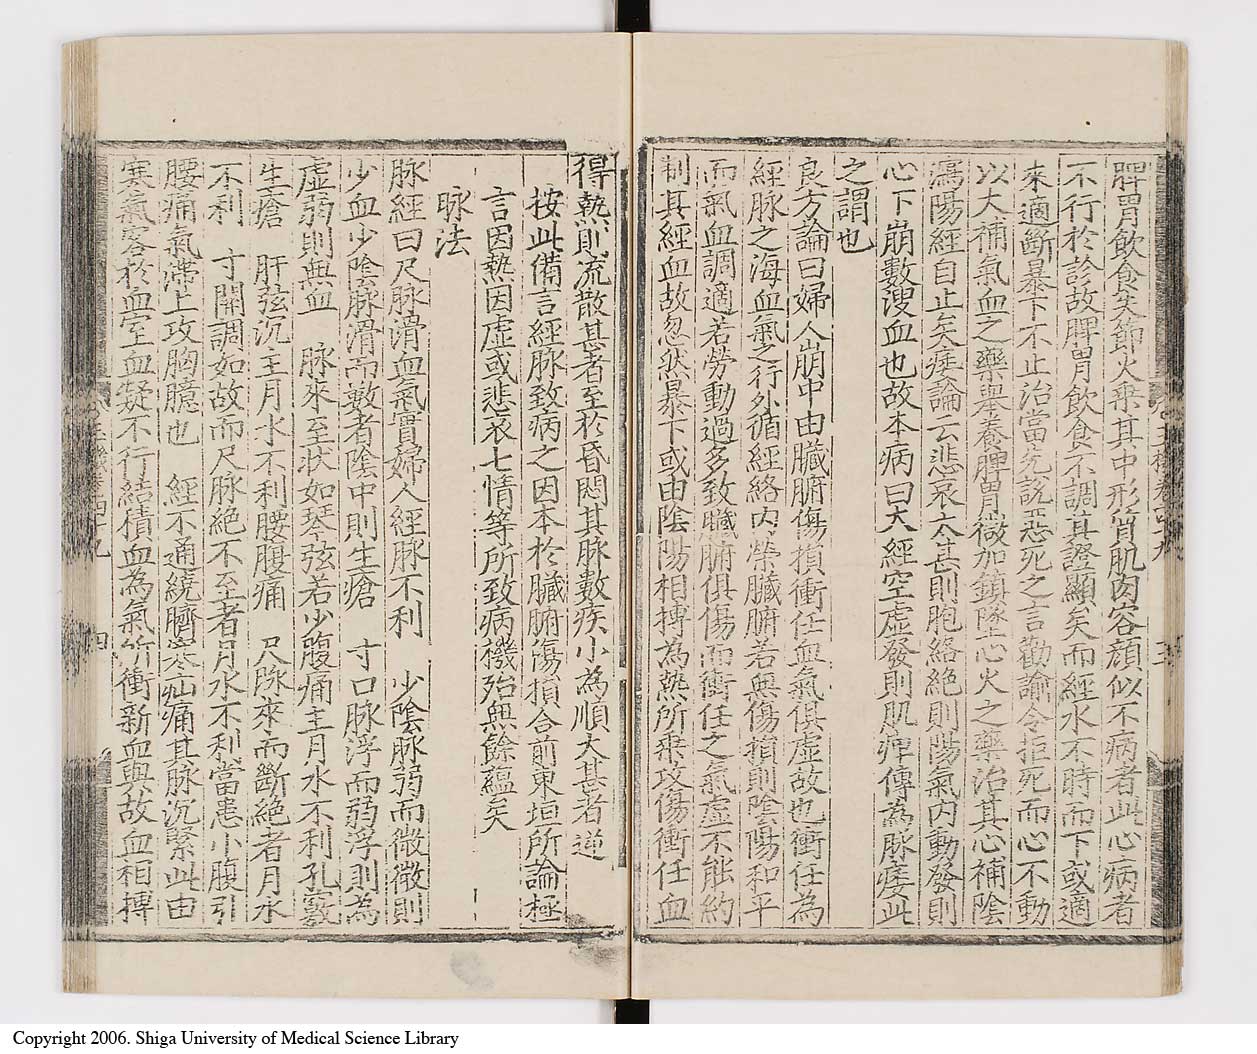 脾胃飲食失節火乘其中形質肌肉容顏似不病者此心病者
不行於診故脾胃飲食不調其證顯矣而經水不時而下或適
來適斷暴下不止治當先說惡死之言勸諭令拒死而心不動
以大補氣血之藥舉養脾胃微加鎮墜心火之藥治其心補陰
瀉陽經自止矣痿論云悲哀太甚則胞絡絕則陽氣內動發則
心下崩數溲血也故本病曰大經空虛發則肌痺傳為脉痿此
之謂也
良方論曰婦人崩中由臟腑傷損衝任血氣俱虛故也衝任為
經脉之海血氣之行外循經絡內榮臟腑若無傷損則陰陽和平
而氣血調適若勞動過多致臟腑俱傷而衝任之氣虛不能約
制其經血故忽然暴下或由陰陽相搏為熱所乘攻傷衝任血
得熱則流散甚者至於昏悶其脉數疾小為順大甚者逆
按此備言經脉致病之因本於臟腑傷損合前東垣所論極
言因熱因虛或悲哀七情等所致病機殆無餘蘊矣
脉法
脉經曰尺脉滑血氣實婦人經脉不利 少陰脉弱而微微則
少血少陰脉滑而數者陰中則生瘡 寸口脉浮而弱浮則為
虛弱則無血 脉來至狀如琴弦若少腹痛主月水不利孔竅
生瘡 肝弦沉主月水不利腰腹痛 尺脉來而斷絕者月水
不利 寸關調如故而尺脉絕不至者月水不利當患小腹引
腰痛氣滯上攻胸臆也 經不通繞臍寒疝痛其脉沉緊此由
寒氣客於血室血凝不行結積血為氣所衝新血與故血相搏
四
Copyright 2006. Shiga University of Medical Science Library